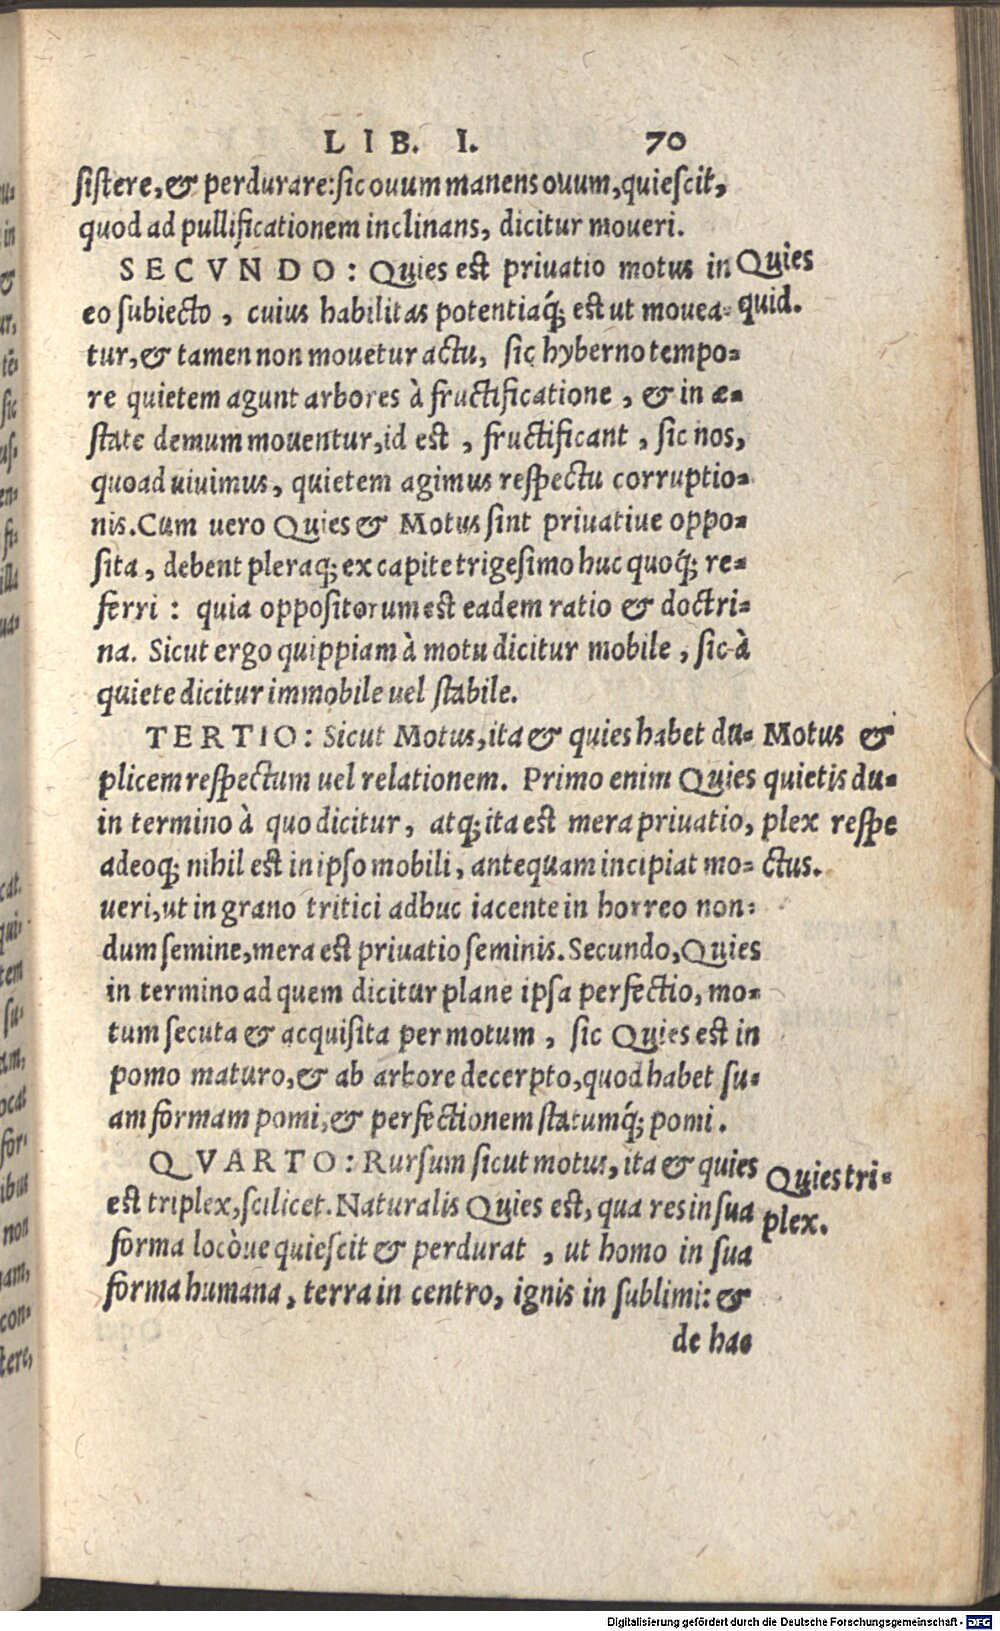 LIB. I. 70
sistere, & perdurare: sic ouum manens ouum, quiescit,
quod ad pullificationem inclinans, dicitur moueri.
SECVNDO: Quies est priuatio motus in
eo subiecto, cuius habilitas potentiaq́; est ut mouea-
tur, & tamen non mouetur actu, sic hyberno tempo-
re quietem agunt arbores à fructificatione, & in æ-
state demum mouentur, id est, fructificant, sic nos,
quoad uiuimus, quietem agimus respectu corruptio-
nis. Cum uero Quies & Motus sint priuatiue oppo-
sita, debent pleraq; ex capite trigesimo huc quoq́; re-
ferri: quia oppositorum est eadem ratio & doctri-
na. Sicut ergo quippiam à motu dicitur mobile, sic à
quiete dicitur immobile uel stabile.
Quies
quid.
TERTIO: Sicut Motus, ita & quies habet du-
plicem respectum uel relationem. Primo enim Quies
in termino à quo dicitur, atq; ita est mera priuatio,
adeoq; nihil est in ipso mobili, antequam incipiat mo-
ueri, ut in grano tritici adhuc iacente in horreo non-
dum semine, mera est priuatio seminis. Secundo, Quies
in termino ad quem dicitur plane ipsa perfectio, mo-
tum secuta & acquisita per motum, sic Quies est in
pomo maturo, & ab arbore decerpto, quod habet su-
am formam pomi, & perfectionem statumq́; pomi.
Motus &
quietis du-
plex respe
ctus.
QVARTO: Rursum sicut motus, ita & quies
est triplex, scilicet. Naturalis Quies est, qua res in sua
forma locóue quiescit & perdurat, ut homo in sua
forma humana, terra in centro, ignis in sublimi: &
Quies tri-
plex.
de hac
Digitalisierung gefördert durch die Deutsche Forschungsgemeinschaft - DFG